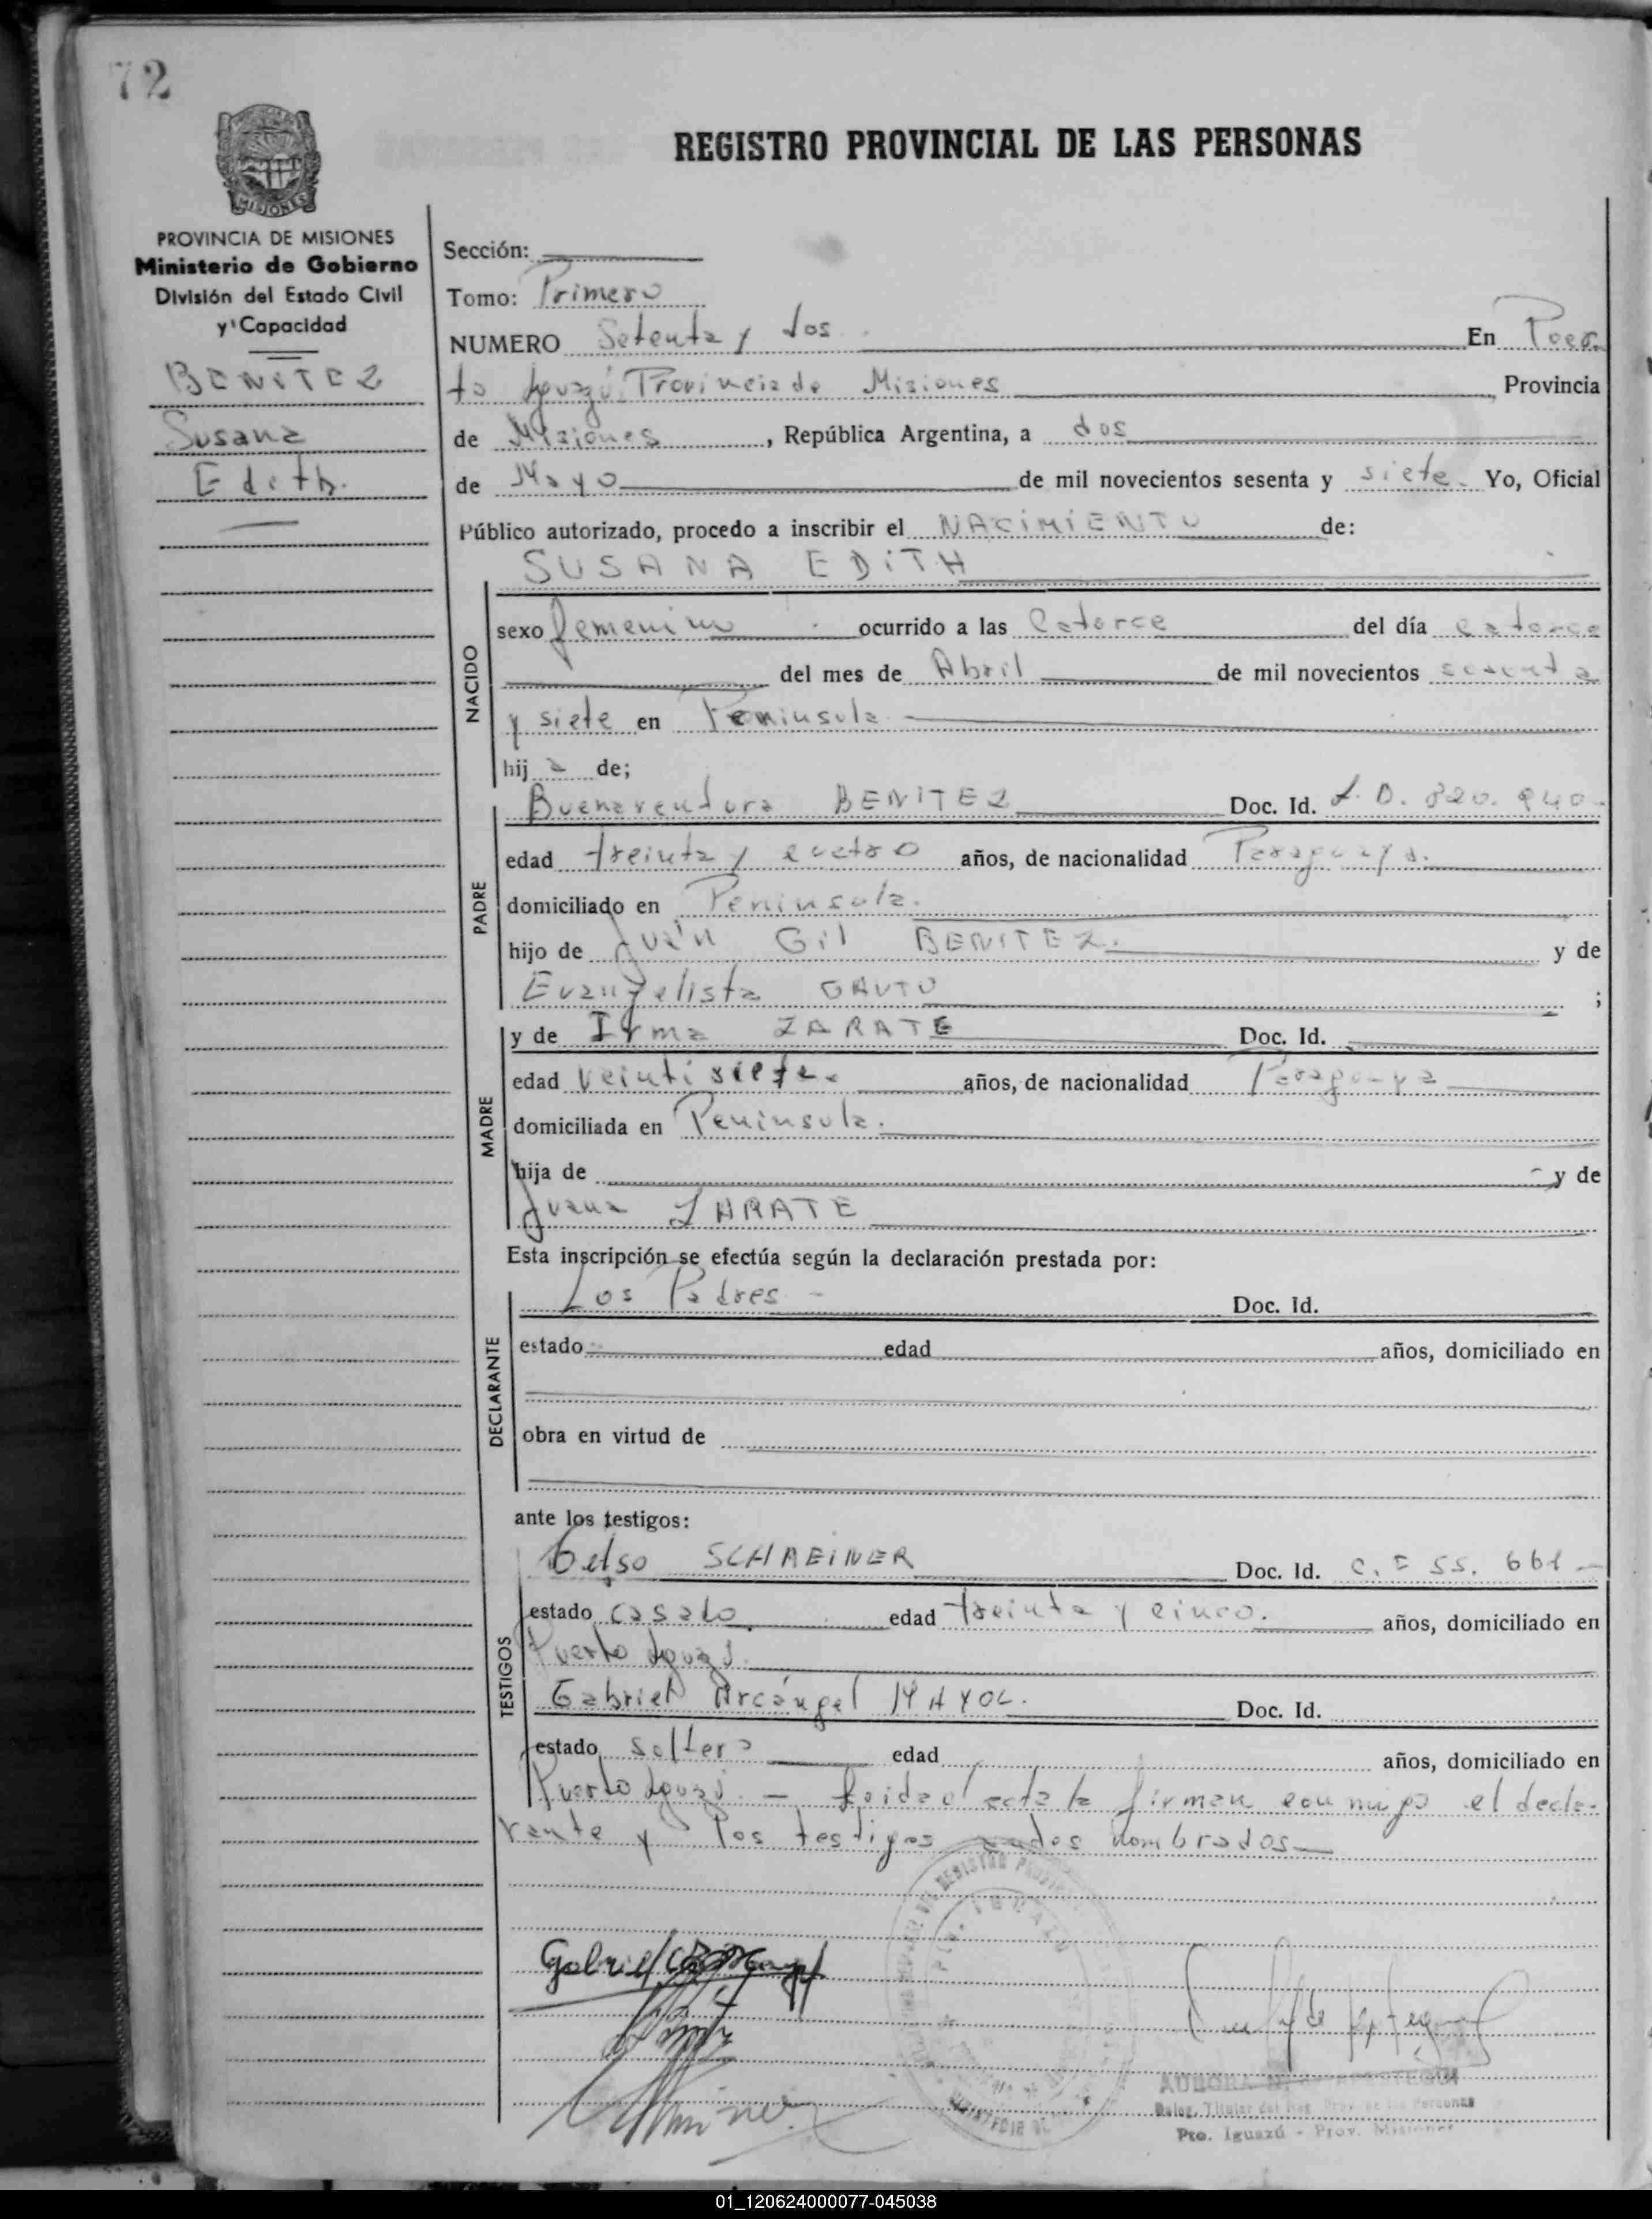 72
REGISTRO PROVINCIAL DE LAS PERSONAS
MISIONES
PROVINCIA DE MISIONES
Ministerio de Gobierno
División del Estado Civil
y Capacidad
BENITEZ
Susana
Edith.
Sección:
Tomo: Primero
NUMERO Setenta y dos En Puer
to Iguazú Provincia de Misiones Provincia
de Misiones, República Argentina, a dos
de Mayo de mil novecientos sesenta y siete. Yo, Oficial
Público autorizado, procedo a inscribir el NACIMIENTO de:
SUSANA EDITH
NACIDO
sexo femenino ocurrido a las Catorce del día catorce
del mes de Abril de mil novecientos sesenta
y siete en Peninsula
hij a de;
PADRE
Buenaventura BENITEZ Doc. Id.
edad treinta y cuatro años, de nacionalidad Paraguaya.
domiciliado en Peninsula.
hijo de Juan Gil BENITEZ. y de
Evangelista GAUTO ;
MADRE
y de Irma ZARATE Doc. Id.
edad veintisiete. años, de nacionalidad Paraguaya
domiciliada en Peninsula.
hija de y de
Juana ZARATE
Esta inscripción se efectúa según la declaración prestada por:
DECLARANTE
Los Padres - Doc. Id.
estado edad años, domiciliado en
obra en virtud de
ante los testigos:
TESTIGOS
Celso SCHREINER Doc. Id. 661
estado casado edad treinta y cinco. años, domiciliado en
Puerto Iguazú.
Gabriel Arcángel MAYOL. Doc. Id.
estado soltero edad años, domiciliado en
Puerto Iguazú. — Leida el acta la firman conmigo el decla-
rante y los testigos nombrados
Gabriel
AURORA
Deleg. Titular del Reg. Prov. de las Personas
Pto. Iguazú - Prov. Misiones
01_120624000077-045038